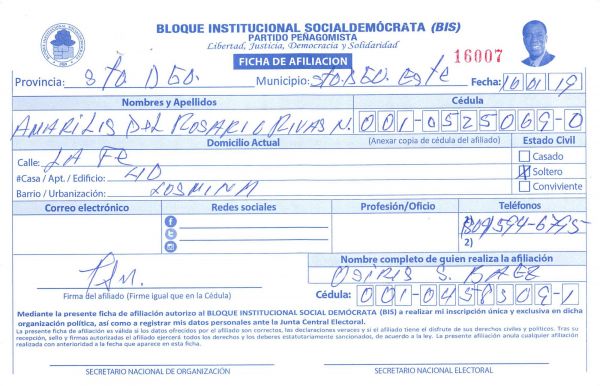 BLOQUE INSTITUCIONAL SOCIALDEMÓCRATA (BIS)
PARTIDO PEÑAGOMISTA
Libertad, Justicia, Democracia y Solidaridad
FICHA DE AFILIACION
16007
Provincia: Sto Dgo. Municipio: Sto Dgo. Este Fecha: 16/01/19
Nombres y Apellidos Cédula
AMARILIS DEL ROSARIO RIVAS N. 001-0525069-0
Domicilio Actual (Anexar copia de cédula del afiliado) Estado Civil
Calle: LA FE Casado
#Casa / Apt. / Edificio: 40 X Soltero
Barrio / Urbanización: LOSMINA Conviviente
Correo electrónico Redes sociales Profesión/Oficio Teléfonos
1) 809 594-6795
2)
Nombre completo de quien realiza la afiliación
OSIRIS S. BAEZ
Firma del afiliado (Firme igual que en la Cédula) Cédula: 001-0458309-1
Mediante la presente ficha de afiliación autorizo al BLOQUE INSTITUCIONAL SOCIAL DEMÓCRATA (BIS) a realizar mi inscripción única y exclusiva en dicha
organización política, así como a registrar mis datos personales ante la Junta Central Electoral.
La presente ficha de afiliación será válida si los datos ofrecidos por el afiliado son correctos, las declaraciones veraces y si el afiliado tiene el disfrute de sus derechos civiles y políticos. Tras su
recepción, sello y firmas autorizadas el afiliado ejercerá todos los derechos y los deberes estatutariamente sancionados, de acuerdo a la ley. La presente afiliación anula cualquier afiliación
realizada con anterioridad a la fecha que aparece en esta ficha.
SECRETARIO NACIONAL DE ORGANIZACIÓN SECRETARIO NACIONAL ELECTORAL